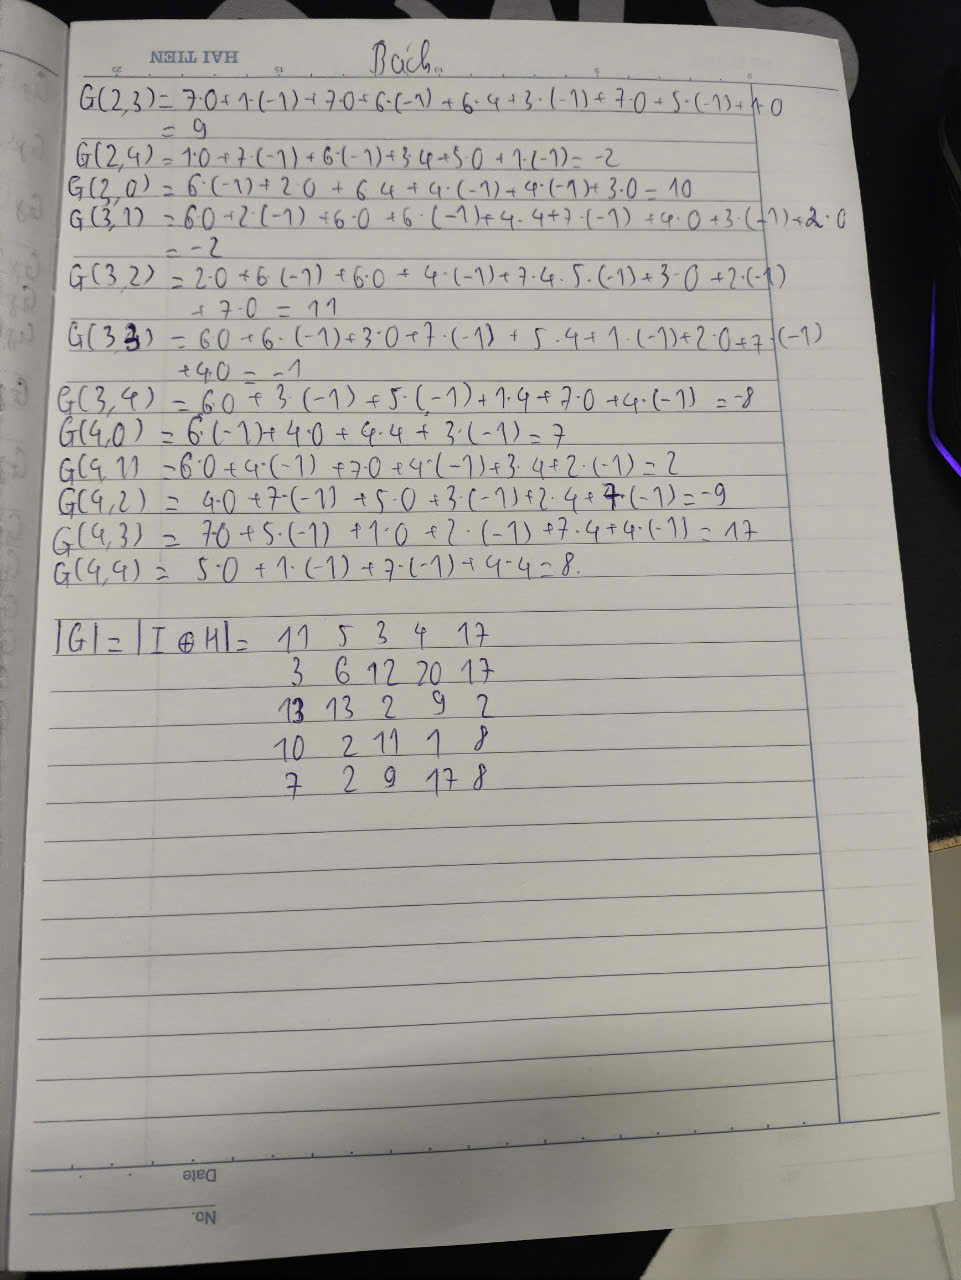 HAI TIEN
Bách
G(2,3) = 7·0+1·(-1)+7·0+6·(-1)+6·4+3·(-1)+7·0+5·(-1)+1·0
= 9
G(2,4) = 1·0+7·(-1)+6·(-1)+3·4+5·0+1·(-1)=-2
G(2,0) = 6·(-1)+2·0+6·4+4·(-1)+4·(-1)+3·0=10
G(3,1) = 6·0+2·(-1)+6·0+6·(-1)+4·4+7·(-1)+4·0+3·(-1)+2·0
= -2
G(3,2) = 2·0+6·(-1)+6·0+4·(-1)+7·4·5·(-1)+3·0+2·(-1)
+7·0=11
G(3 3) = 60+6·(-1)+3·0+7·(-1)+5·4+1·(-1)+2·0+7·(-1)
+4·0=-1
G(3,4) = 60+3·(-1)+5·(-1)+1·4+7·0+4·(-1)=-8
G(4,0) = 6·(-1)+4·0+4·4+3·(-1)=7
G(4,1) = 6·0+4·(-1)+7·0+4·(-1)+3·4+2·(-1)=2
G(4,2) = 4·0+7·(-1)+5·0+3·(-1)+2·4+7·(-1)=-9
G(4,3) = 70+5·(-1)+1·0+2·(-1)+7·4+4·(-1)=17
G(4,4) = 5·0+1·(-1)+7·(-1)+4·4=8.
|G|=|I⊕H|= 11 5 3 4 17
3 6 12 20 17
13 13 2 9 2
10 2 11 1 8
7 2 9 17 8
Date
No.